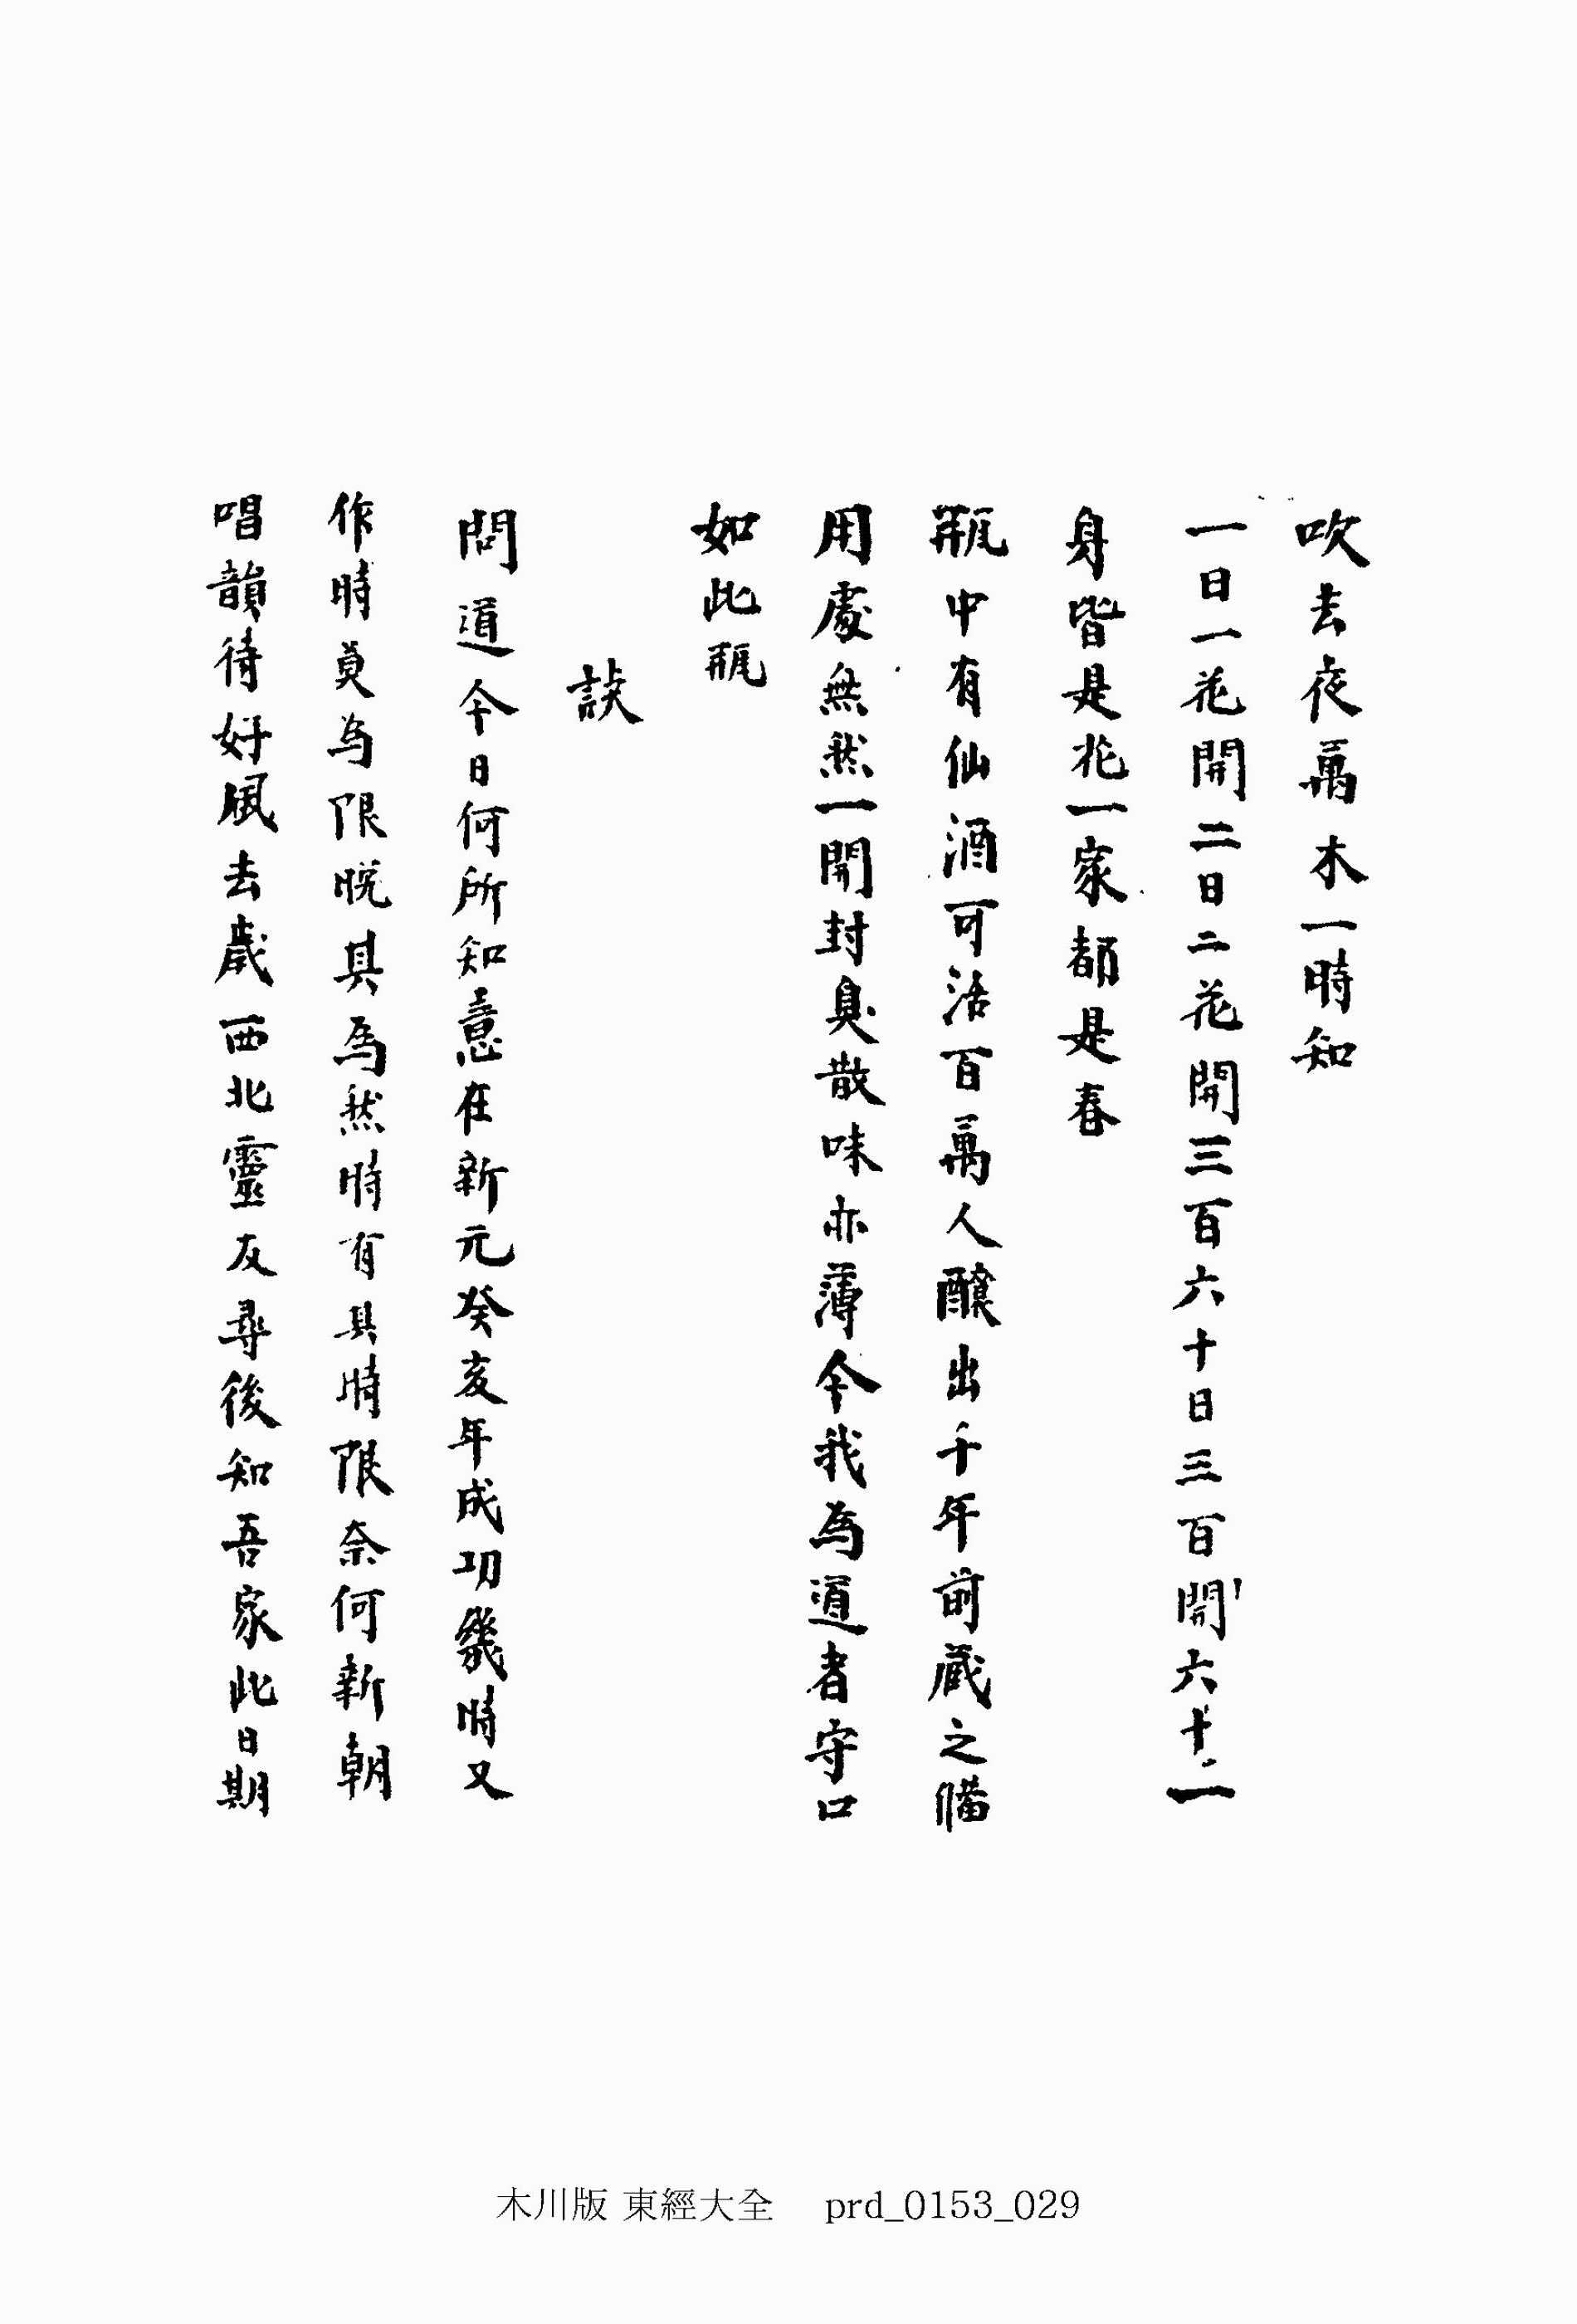 吹去夜萬木一時知
一日一花開二日二花開三百六十日三百開六十一
身皆是花一家都是春
甁中有仙酒可活百萬人釀出千年前藏之備
用處無然一開封臭散味亦薄今我爲道者守口
如此甁
訣
問道今日何所知意在新元癸亥年成功幾時又
作時莫爲恨晩其爲然時有其時恨奈何新朝
唱韻待好風去歲西北靈友尋後知吾家此日期
木川版 東經大全 prd_0153_029